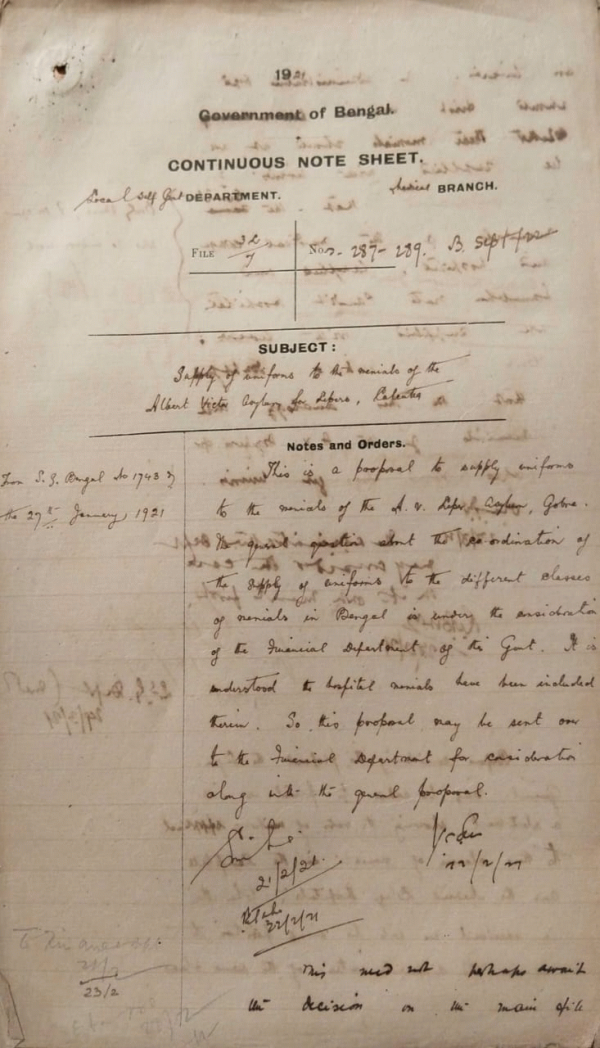 192
Government of Bengal.
CONTINUOUS NOTE SHEET.
Local Self Govt DEPARTMENT.
Medical BRANCH.
FILE 3L/7 Nos. 287-289. B. Sept/22
SUBJECT:
Supply of uniforms to the menials of the
Albert Victor Asylum for Lepers, Calcutta
Notes and Orders.
From S. G. Bengal No 1743 of
the 27th January, 1921
This is a proposal to supply uniforms
to the menials of the A. V. Leper Asylum, Gobra.
The general question about the co-ordination of
the supply of uniforms to the different classes
of menials in Bengal is under the consideration
of the Financial Department of this Govt. It is
understood the hospital menials have been included
therein. So this proposal may be sent over
to the Financial Department for consideration
along with the general proposal.
21/2/21
22/2/21
22/2/21
To Finance
23/2
This need not perhaps await
the decision on the main file